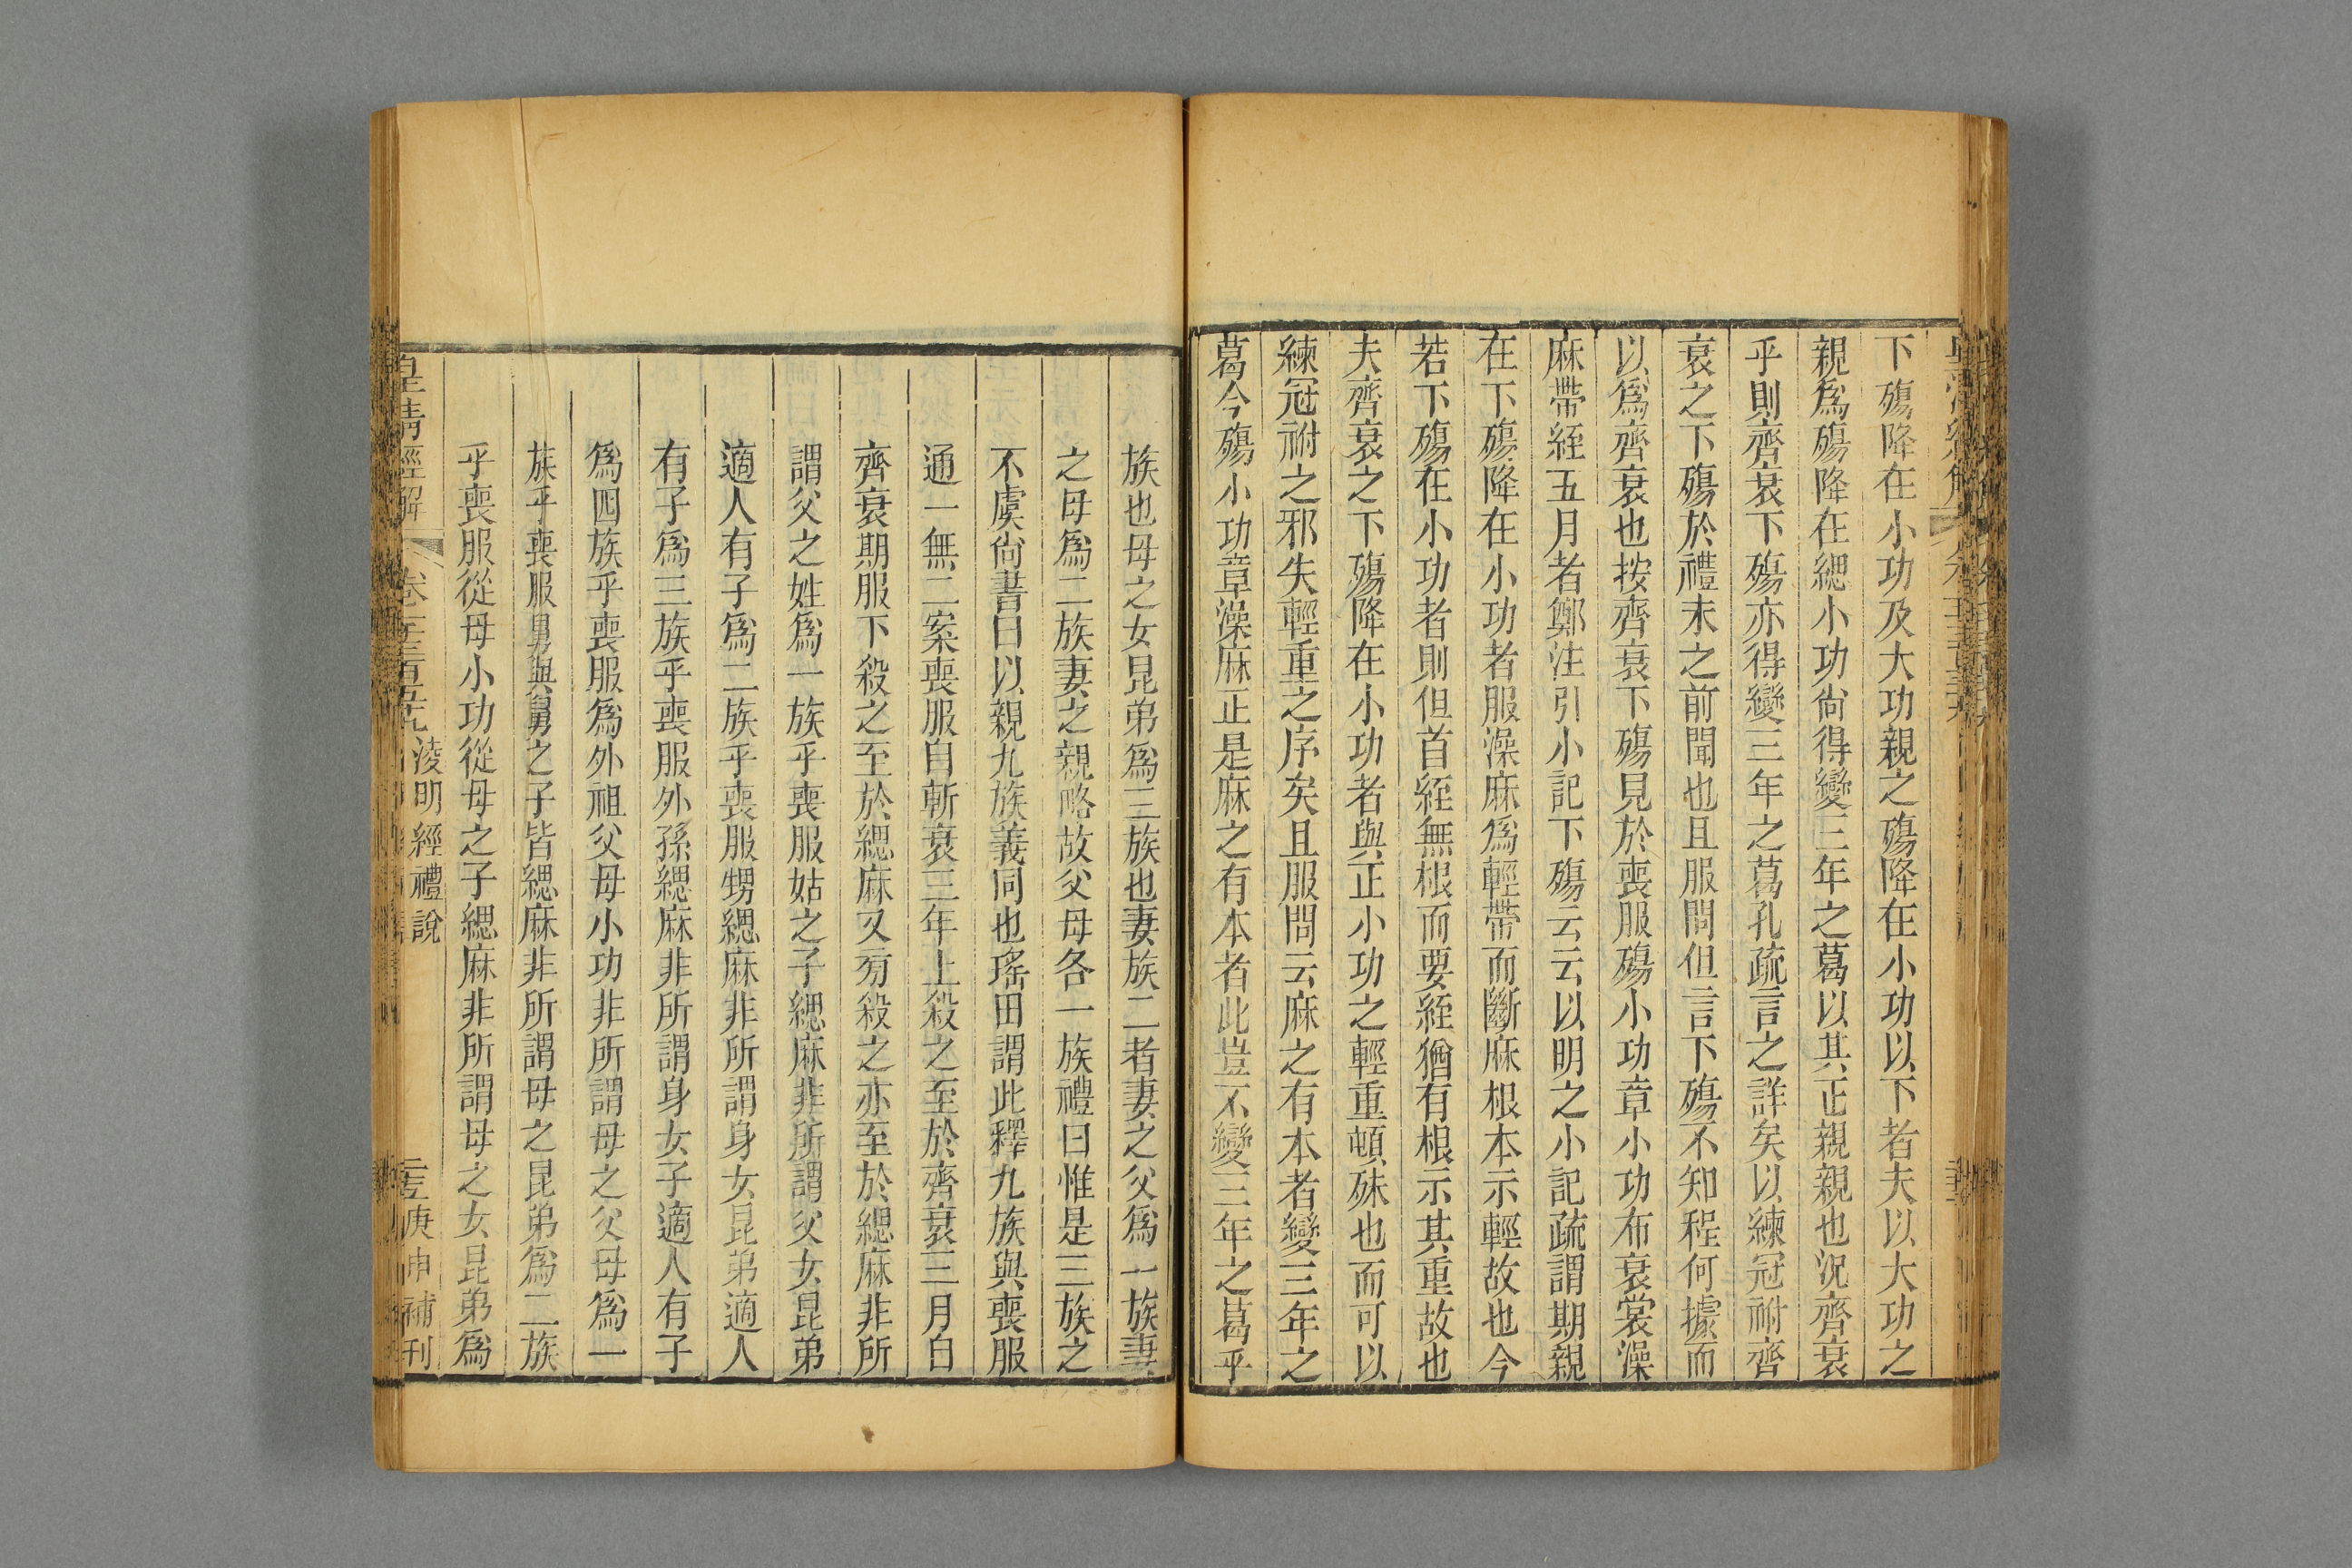 下殤降在小功及大功親之殤降在小功以下者夫以大功之
親爲殤降在緦小功尙得變三年之葛以其正親親也況齊衰
乎則齊衰下殤亦得變三年之葛孔疏言之詳矣以練冠祔齊
衰之下殤於禮未之前聞也且服問但言下殤不知程何據而
以爲齊衰也按齊衰下殤見於喪服殤小功章小功布衰裳澡
麻帶絰五月者鄭注引小記下殤云云以明之小記疏謂期親
在下殤降在小功者服澡麻爲輕帶而斷麻根本示輕故也今
若下殤在小功者則但首絰無根而要絰猶有根示其重故也
夫齊衰之下殤降在小功者與正小功之輕重頓殊也而可以
練冠祔之邪失輕重之序矣且服問云麻之有本者變三年之
葛今殤小功章澡麻正是麻之有本者此豈不變三年之葛乎
族也母之女昆弟爲三族也妻族二者妻之父爲一族妻
之母爲二族妻之親略故父母各一族禮曰惟是三族之
不虞尙書曰以親九族義同也瑤田謂此釋九族與喪服
通一無二案喪服自斬衰三年上殺之至於齊衰三月自
齊衰期服下殺之至於緦麻又旁殺之亦至於緦麻非所
謂父之姓爲一族乎喪服姑之子緦麻非所謂父女昆弟
適人有子爲二族乎喪服甥緦麻非所謂身女昆弟適人
有子爲三族乎喪服外孫緦麻非所謂身女子適人有子
爲四族乎喪服爲外祖父母小功非所謂母之父母爲一
族乎喪服舅與舅之子皆緦麻非所謂母之昆弟爲二族
乎喪服從母小功從母之子緦麻非所謂母之女昆弟爲
皇淸經解 卷一千三百五十九 淩明經禮說 庚申補刊